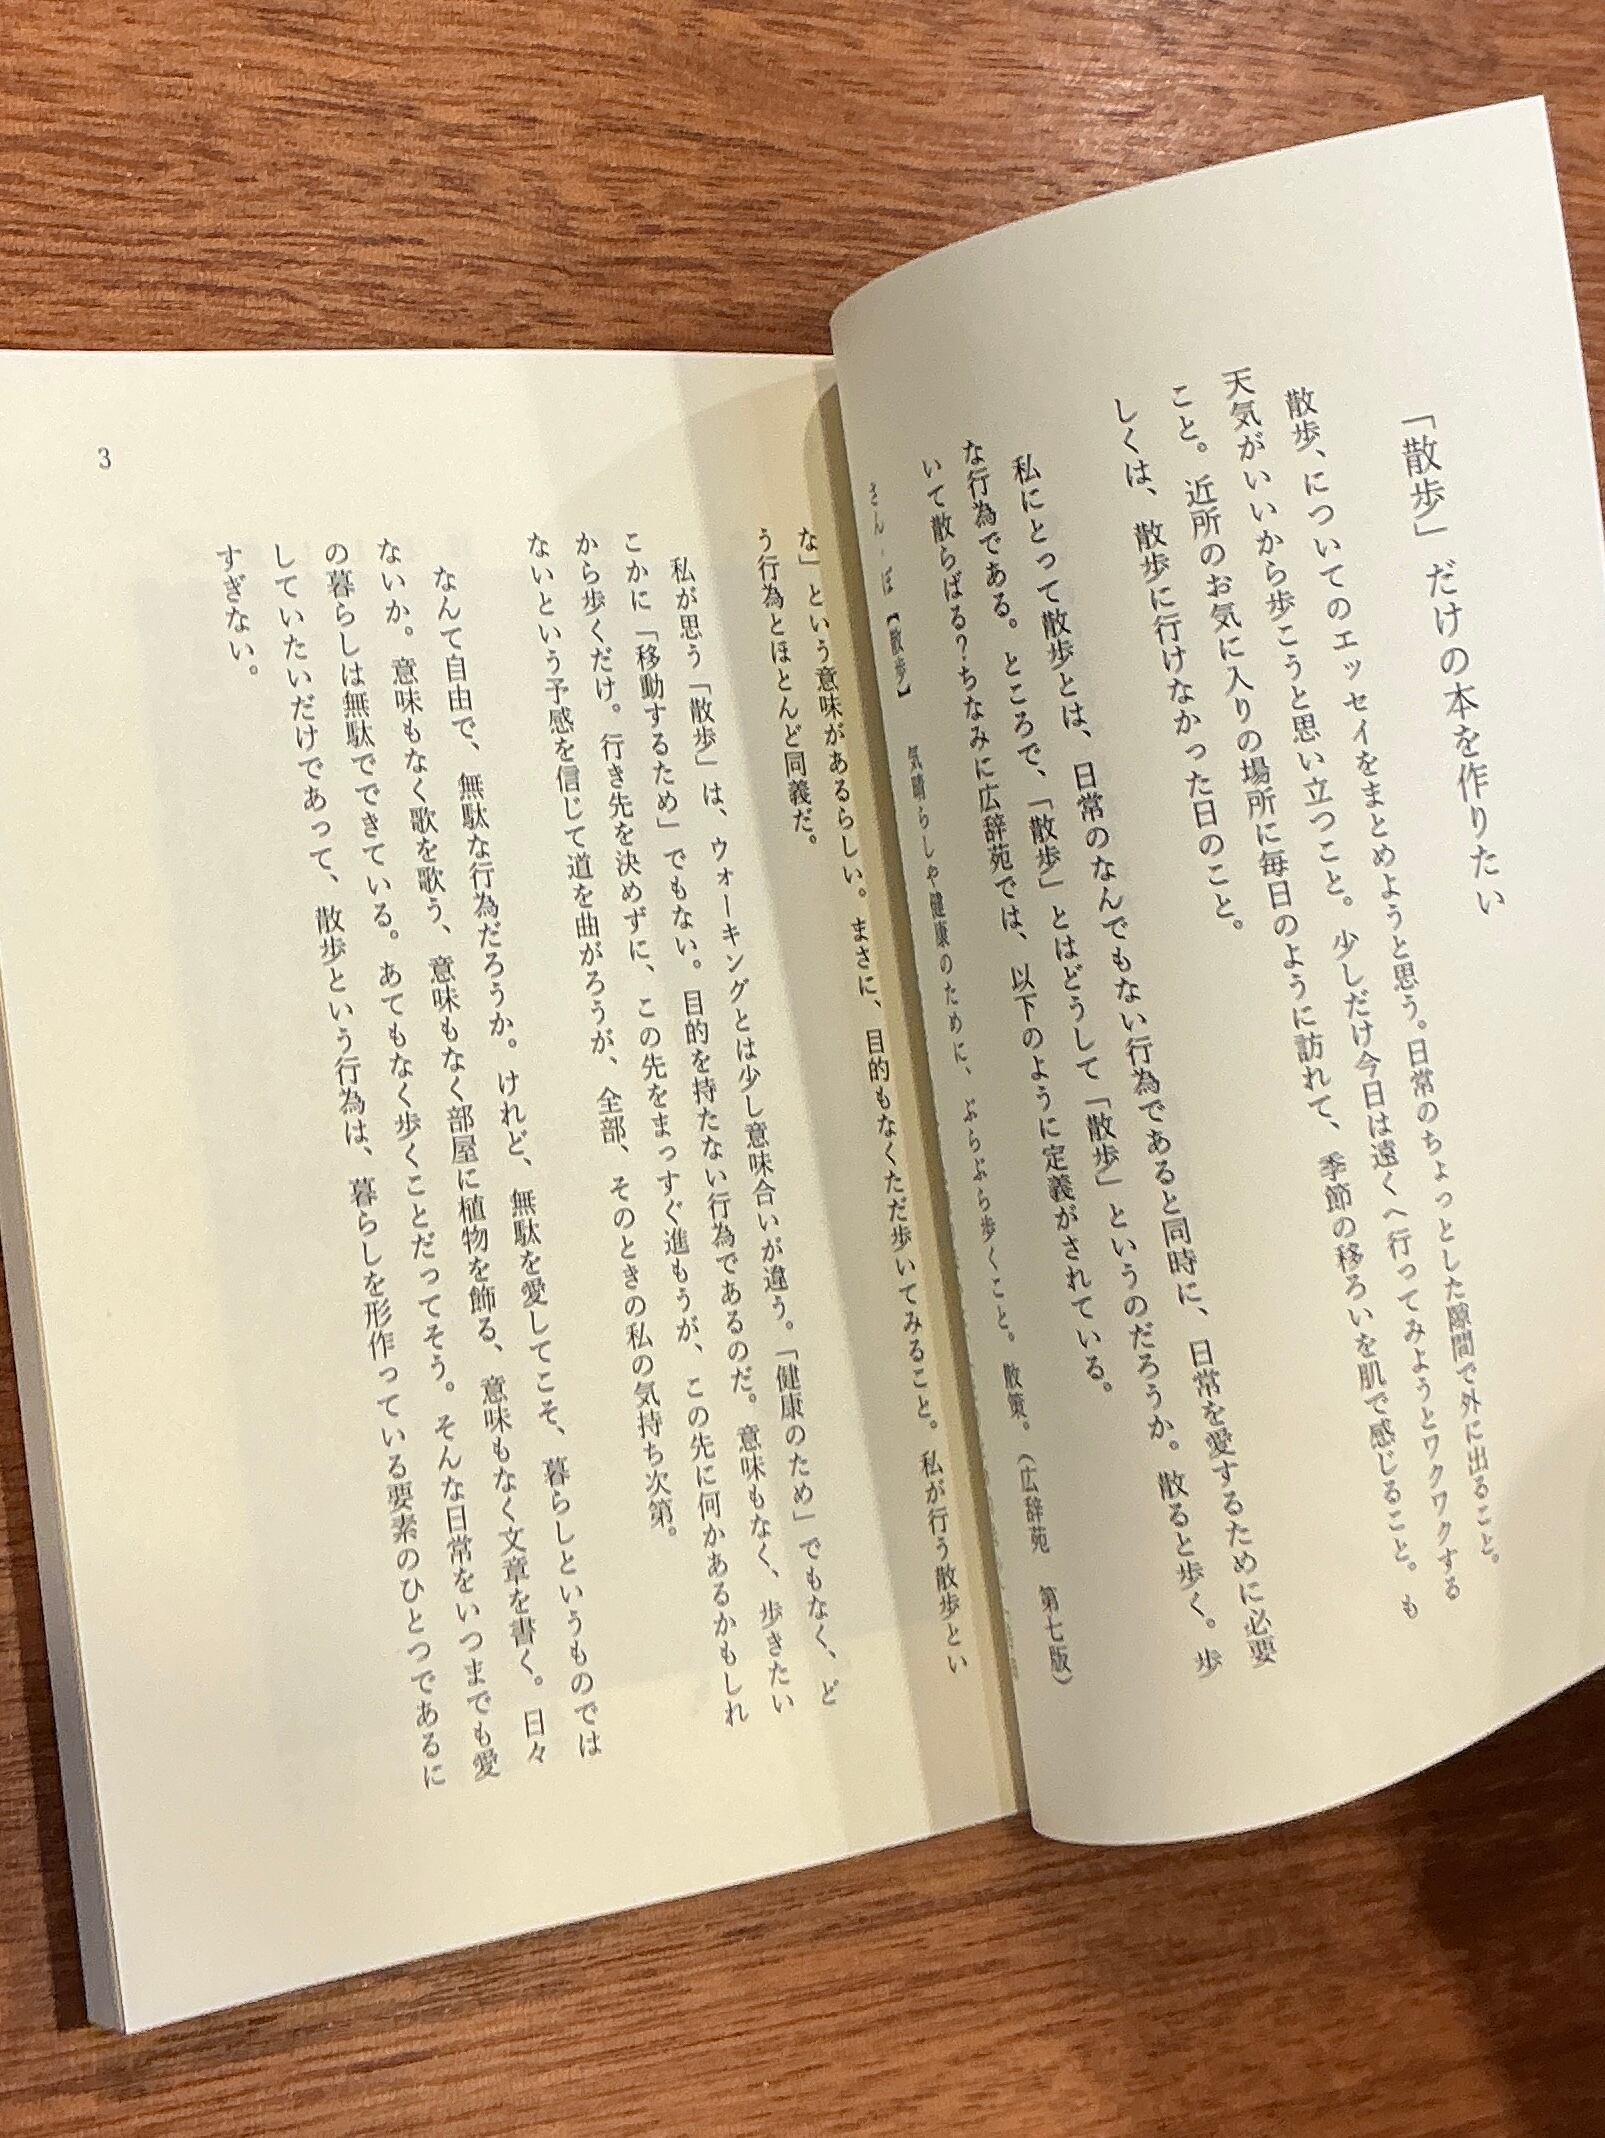 「散歩」だけの本を作りたい
散歩、についてのエッセイをまとめようと思う。日常のちょっとした隙間で外に出ること。
天気がいいから歩こうと思い立つこと。少しだけ今日は遠くへ行ってみようとワクワクする
こと。近所のお気に入りの場所に毎日のように訪れて、季節の移ろいを肌で感じること。も
しくは、散歩に行けなかった日のこと。
私にとって散歩とは、日常のなんでもない行為であると同時に、日常を愛するために必要
な行為である。ところで、「散歩」とはどうして「散歩」というのだろうか。散ると歩く。歩
いて散らばる?ちなみに広辞苑では、以下のように定義がされている。
さん‐ぽ【散歩】 気晴らしや健康のために、ぶらぶら歩くこと。散策。（広辞苑 第七版）
な」という意味があるらしい。まさに、目的もなくただ歩いてみること。私が行う散歩とい
う行為とほとんど同義だ。
私が思う「散歩」は、ウォーキングとは少し意味合いが違う。「健康のため」でもなく、ど
こかに「移動するため」でもない。目的を持たない行為であるのだ。意味もなく、歩きたい
から歩くだけ。行き先を決めずに、この先をまっすぐ進もうが、この先に何かあるかもしれ
ないという予感を信じて道を曲がろうが、全部、そのときの私の気持ち次第。
なんて自由で、無駄な行為だろうか。けれど、無駄を愛してこそ、暮らしというものでは
ないか。意味もなく歌を歌う、意味もなく部屋に植物を飾る、意味もなく文章を書く。日々
の暮らしは無駄でできている。あてもなく歩くことだってそう。そんな日常をいつまでも愛
していたいだけであって、散歩という行為は、暮らしを形作っている要素のひとつであるに
すぎない。
3